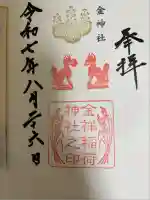 奉拝
金神社
金神稲荷
神社之印
令和七年八月二十六日